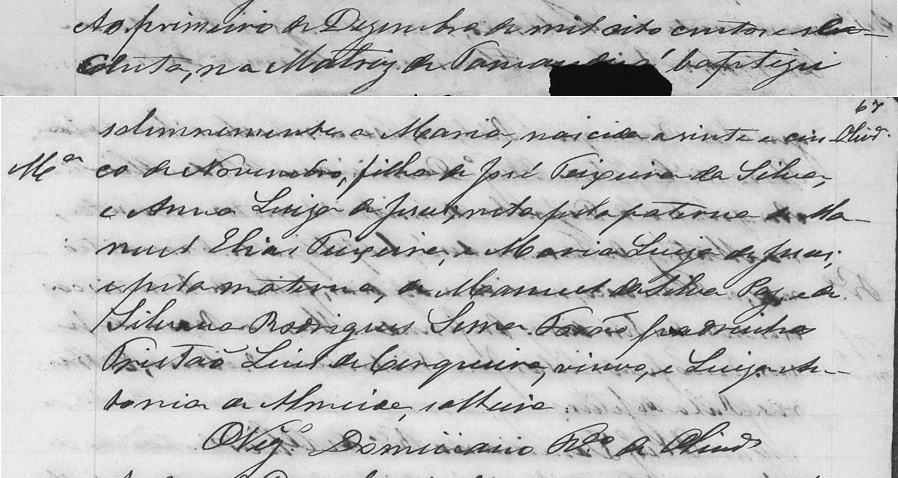 Ao primeiro de Dezembro de mil oito centos e oi-
tenta, na Matriz de Tamanduá baptizei
67
solemnemente a Maria, nascida a vinte e cin
Mª
co de Novembro, filha de José Teixeira da Silva,
e Anna Luiza de Jesus, neta pela paterna de Ma-
nuel Elias Teixeira, e Maria Luiza de Jesus;
e pela materna, de Manuel da Silva e de
Silvana Rodrigues Forão padrinhos
Tristaõ Luis de Cerqueira, viuvo, e Luiza An-
tonia de Almeida, solteira.
O Vigº Domiciano de